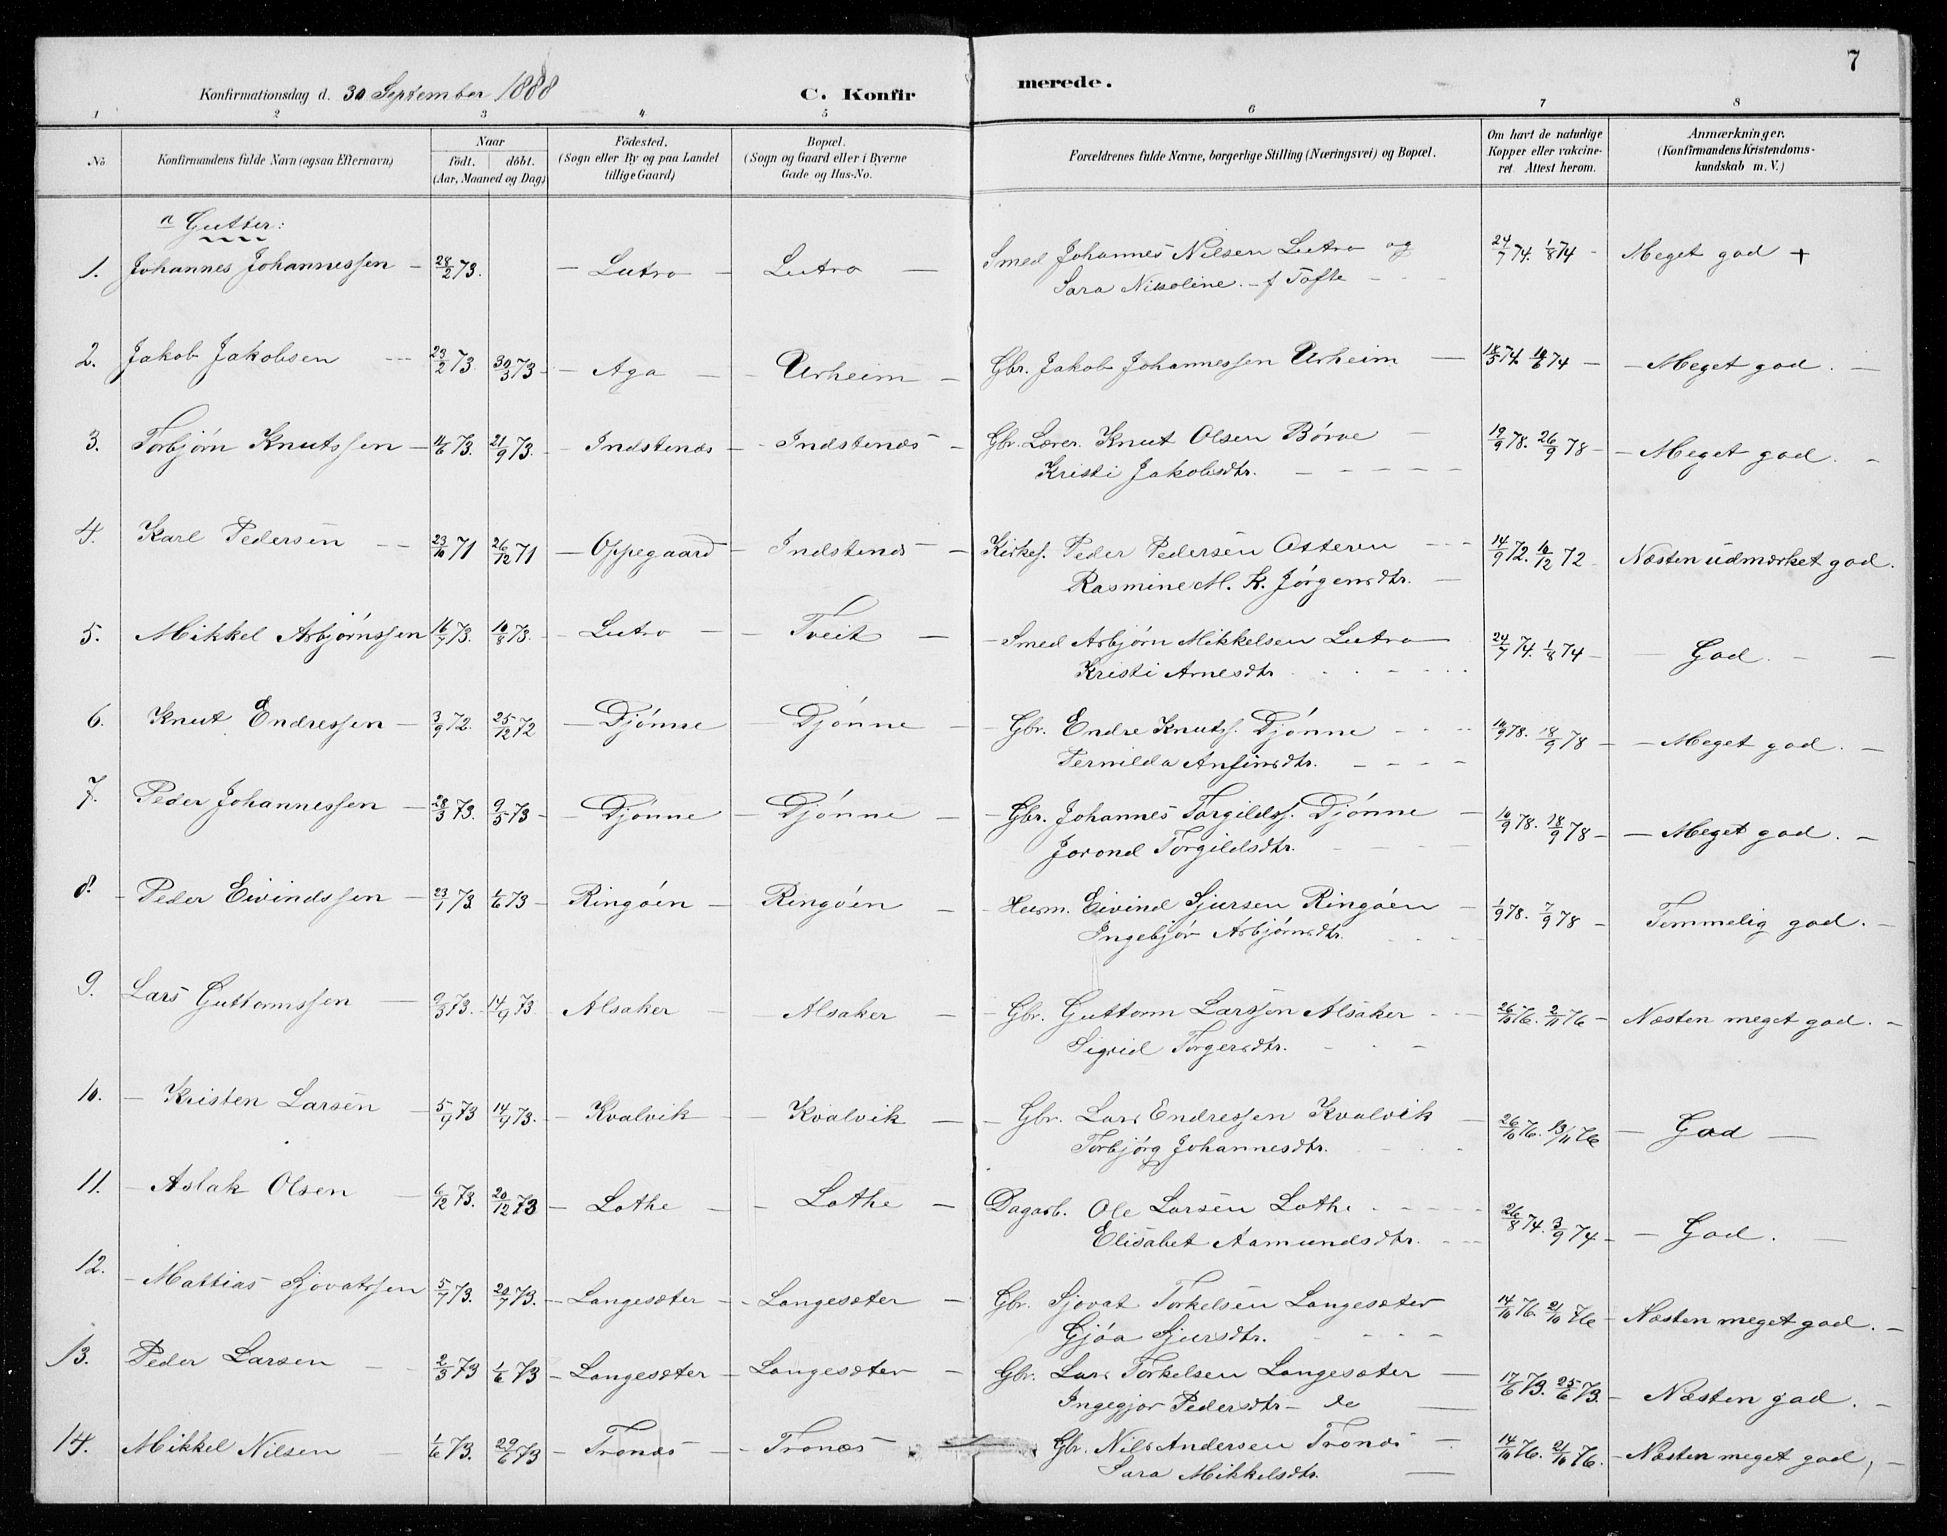 7
Konfirmationsdag d. 30 September 1888 C. Konfirmerede.
1 2 3 4 5 6 7 8
No Konfirmandens fulde Navn (ogsaa Efternavn) Naar født. døbt. (Aar, Maaned og Dag) Fødested. (Sogn eller By og paa Landet tillige Gaard) Bopæl. (Sogn og Gaard eller i Byerne Gade og Hus-No. Forældrenes fulde Navne, borgerlige Stilling (Næringsvei) og Bopæl. Om havt de naturlige Kopper eller vakcineret Attest herom. Anmærkninger. (Konfirmandens Kristendomskundskab m. V.)
Gutter:
1. Johannes Johannessen – 28/2 73. – Lutro – Lutro – Smed Johannes Nilsen Lutro og 24/7 74. 1/8 74 – Meget god +
Sara Nikoline – f Tofte
2. Jakob Jakobsen 23/2 73. 30/3 73 – Aga – Urheim – Gbr. Jakob Johannessen Urheim – 74. 74 – Meget god. –
3. Torbjørn Knutssen – 11/6 73. 21/9 73. – Indstenæs – Indstenæs – Gbr. Lærer. Knut Olsen Børve – 19/9 78. 26/9 78 – Meget god. –
Kristi Jakobsdtr.
4. Karl Pedersen 23/10 71 26/12 71 – Oppegaard – Indstenæs – Kirkes. Peder Pedersen Osteren 14/9 72. 72 Næsten udmærket god.
Rasmine M. K. Jørgensdtr. –
5. Mikkel Asbjørnssen 16/7 73. 10/8 73. – Lutro – Tveit – Smed Asbjørn Mikkelsen Lutro 24/7 74. 1/8 74 – God. –
Kristi Arnesdtr.
6. Knut Endressen – 3/9 72. 25/12 72 – Djønne – Djønne – Gbr. Endre Knuts. Djønne 10/9 78. 18/9 78 – Meget god. –
Pernilda Anfinsdtr.
7. Peder Johannessen – 28/3 73. 9/5 73 – Djønne – Djønne – Gbr. Johannes Torgilds. Djønne – 10/9 78. 18/9 78 – Meget god. –
Jorond Torgildsdtr.
8. – Peder Eivindssen – 23/1 73. 1/6 73 – Ringøen – Ringøen – Husm. Eivind Sjursen Ringøen – 1/9 78. 7/9 78 – Temmelig god. –
Ingebjør Asbjørnsdtr.
9. Lars Guttormssen – 9/3 73. 14/9 73. – Alsaker – Alsaker – Gbr. Guttorm Larssen Alsaker 26/10 76. 2/11 76 – Næsten meget god. –
Sigrid Torgersdtr.
10. – Kristen Larsen – 5/9 73 14/9 73. – Kvalvik – Kvalvik – Gbr. Lars Endressen Kvalvik – 26/10 76. 13/11 76 – God –
Torbjørg Johannesdtr.
11. – Aslak Olsen – 6/12 73. 20/12 73 – Lothe – Lothe – Dagarb. Ole Larsen Lothe 26/8 74. 3/9 74 – God. –
Elisabet Aamundsdtr.
12. – Mattias Sjovatssen 5/7 73. 20/7 73. – Langesæter – Langesæter – Gbr. Sjovat Torkelsen Langesæter 14/10 76. 21/10 76 – Næsten meget god. –
Gjøa Sjursdtr.
13. Peder Larsen – 2/3 73 1/6 73 – Langesæter – Langesæter – Gbr. Lars Torkelsen Langesæter – 17/6 73. 25/6 73. – Næsten god. –
Ingegjør Pedersdtr – do –
14. Mikkel Nilsen – 1/6 73. 29/6 73 – Tronæs – Tronæs – Gbr. Nils Andersen Tronæs – 14/10 76. 21/10 76. – Næsten meget god, –
Sara Mikkelsdtr.